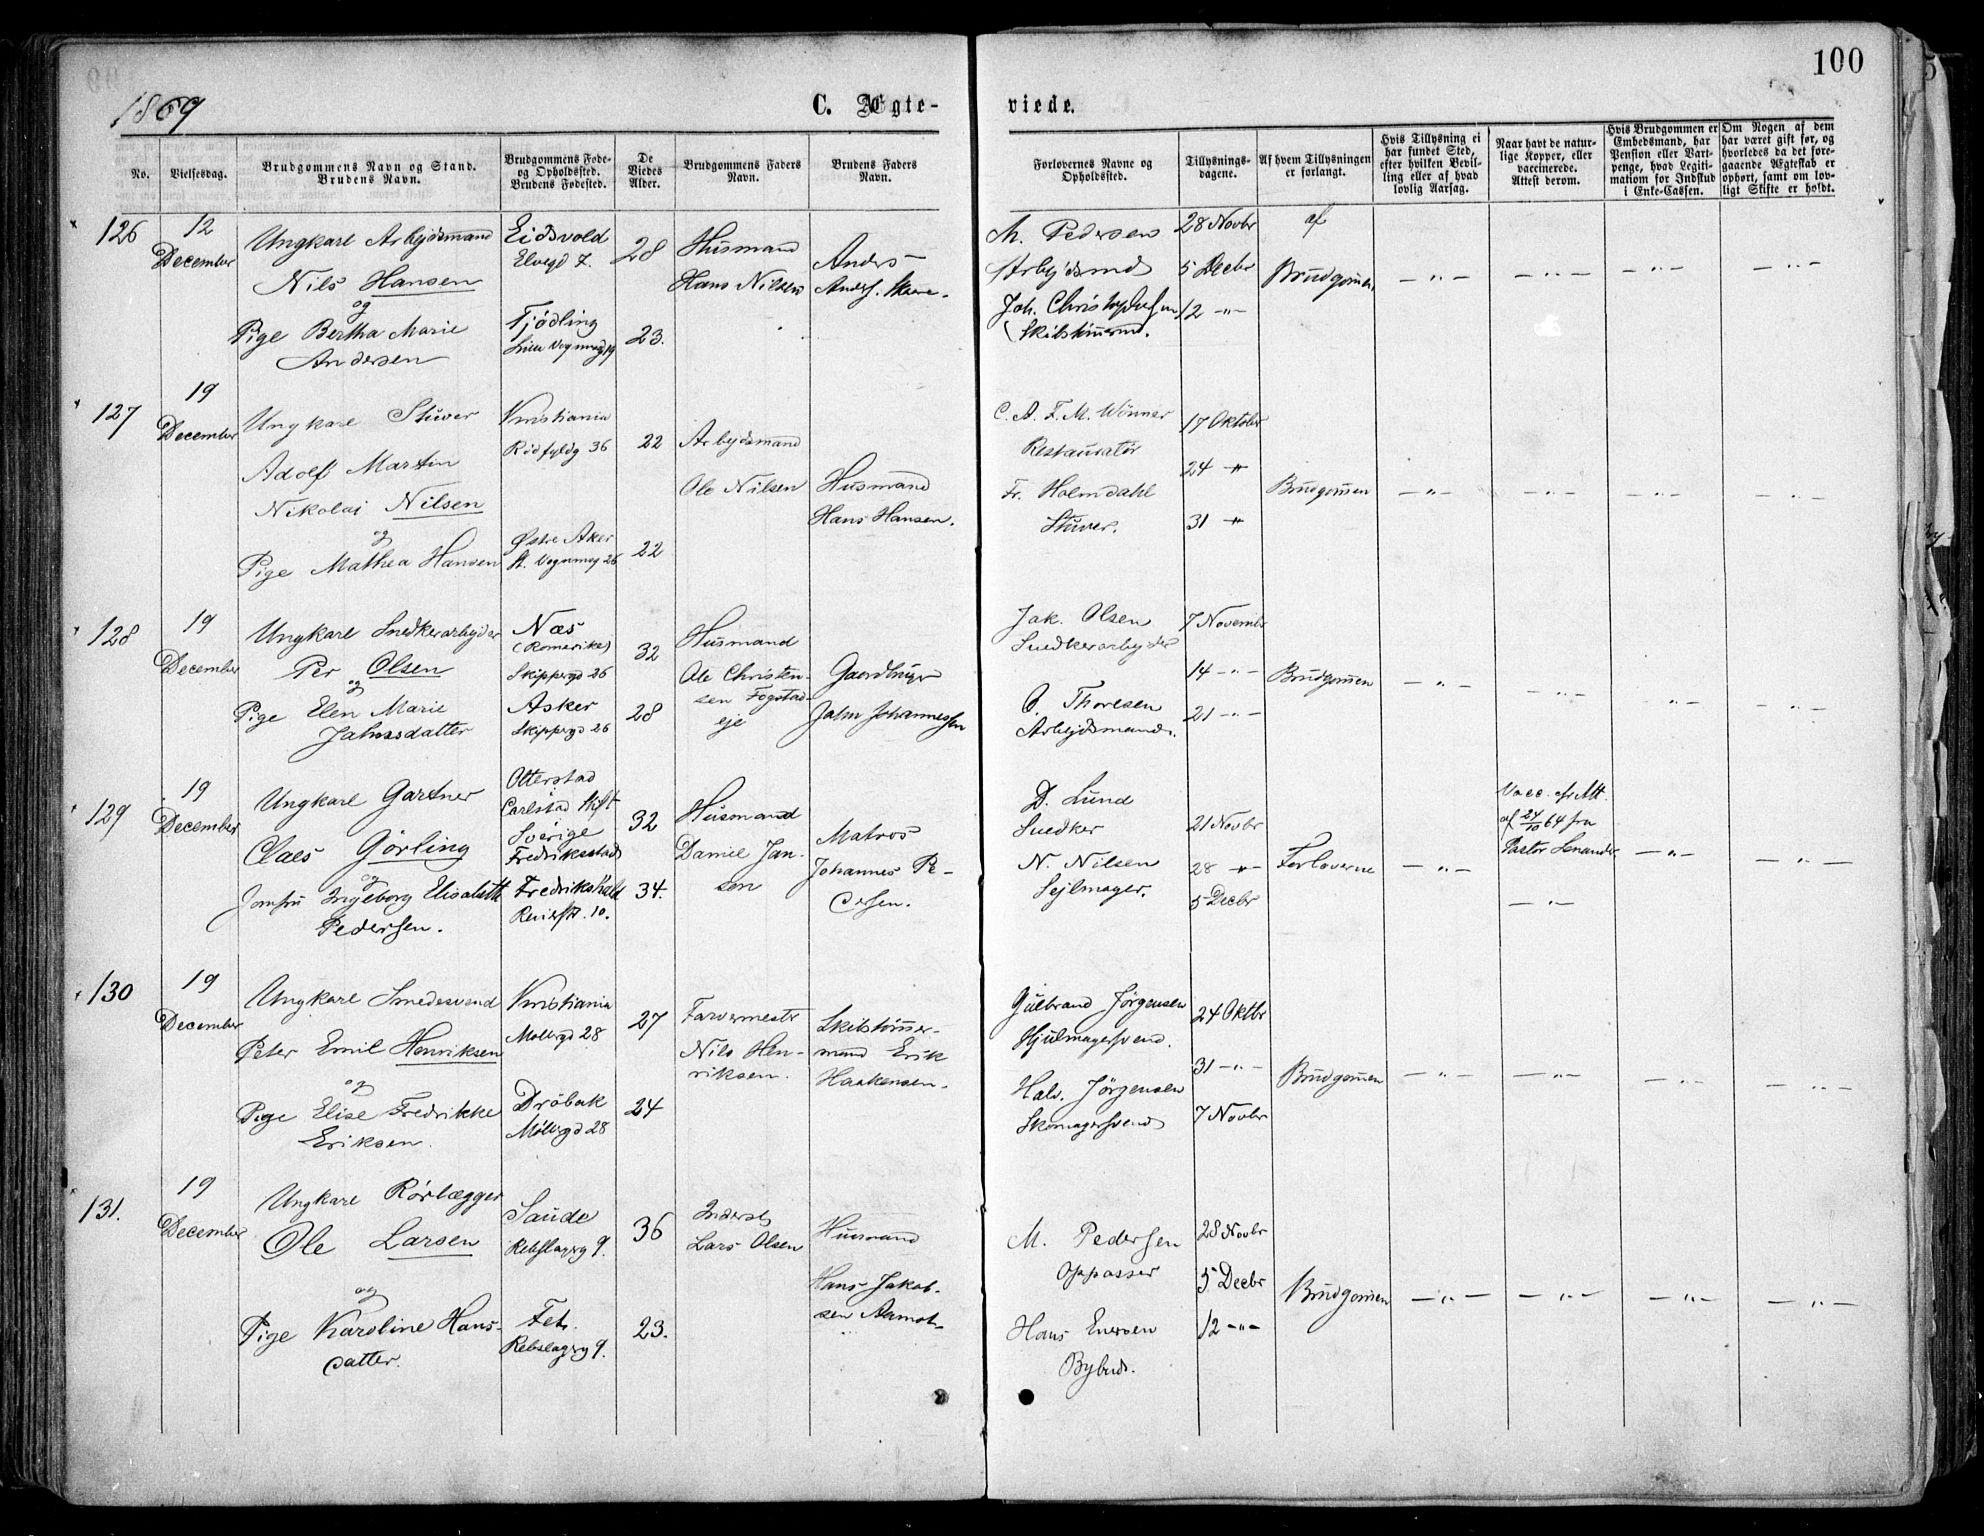 100
1869
C. Ægte-
viede.
No.
Vielsesdag.
Brudgommens Navn og Stand.
Brudens Navn.
Brudgommens Føde-
og Opholdssted.
Brudens Fødested.
De
Viedes
Alder.
Brudgommens Faders
Navn.
Brudens Faders
Navn.
Forlovernes Navne og
Opholdssted.
Tillysnings-
dagene.
Af hvem Tillysningen
er forlangt.
Hvis Tillysning ei
har fundet Sted,
efter hvilken Bevil-
ling eller af hvad
lovlig Aarsag.
Naar havt de natur-
lige Kopper, eller
vaccinerede.
Attest derom.
Hvis Brudgommen er
Embedsmand, har
Pension eller Vart-
penge, hvad Legiti-
mation for Indskud
i Enke-Cassen.
Om Nogen af dem
har været gift før, og
hvorledes da det fore-
gaaende Ægteskab er
ophørt, samt om lov-
ligt Skifte er holdt.
126
12
December
Ungkarl Arbejdsmand
Nils Hansen
og
Pige Bertha Marie
Andersen
Eidsvold
Elvegd 7.
Tjödling
Lille Vognmdg 19
28
23.
Husmand
Hans Nilsen
Anders
M. Pedersen
Arbejdsmd
Joh. Christophersen
Skibstømmd.
28 Novbr
5 Decbr
12 -"-
af
Brudgommen
-"- -"- -"- -"-
127
19
December
Ungkarl Stuver
Adolf Martin
Nikolai Nilsen
og
Pige Mathea Hansen
Kristiania
Rödfyldg 36
Østre Aker
St. Vognmdg 26
22
22
Arbejdsmand
Ole Nilsen
Husmand
Hans Hansen.
C. A. F. M. Wönner
Restauratør
Fr. Holmdahl
Stuver.
17 Oktober
24 -"-
31 -"-
Brudgommen
-"- -"- -"- -"-
128
19
December
Ungkarl Snedkerarbejder
Per Olsen
og
Pige Elen Marie
Jahnsdatter
Næs
(Romerike)
Skippergd 26
Asker
Skippergd 26
32
28
Husmand
Ole Christen-
sen Fogstad-
eje
Gaardbruger
Jahn Johannessen
Jak. Olsen
Snedkerarbejder
O. Thoresen
Arbejdsmand.
7 Novembr
14 -"-
21 -"-
Brudgommen
-"- -"- -"- -"-
129
19
December
Ungkarl Gartner
Claes Görling
og
Jomfru Ingeborg Elisabeth
Pedersen.
Otterstad
Carlstad Stift
Sverige
Fredriksstad
Fredrikshald
Revierst. 10.
32
34.
Husmand
Daniel Jan-
sen
Matros
Johannes Pe-
dersen.
D. Lund
Snedker
N. Nilsen
Sejlmager.
21 Novbr
28 -"-
5 Decbr
Forloverne
-"-
Vacc. efr Att.
af 24/10 64 fra
Pastor Lenander
-"-
-"- -"-
130
19
December
Ungkarl Smedesvend
Peter Emil Henriksen
og
Pige Elise Fredrikke
Eriksen.
Kristiania
Möllergd 28
Dröbak
Möllergd 28
27
24
Farvermester
Nils Hen-
riksen.
Skibstömmer-
mand Erik
Haakensen.
Gulbrand Jørgensen
Hjulmagersvend.
Halv. Jørgensen
Skomagersvend
24 Oktbr
31 -"-
7 Novbr
Brudgommen
-"- -"- -"- -"-
131.
19
December
Ungkarl Rörlægger
Ole Larsen
og
Pige Karoline Hans-
datter.
Saude
Rebslagerg 9.
Fet.
Rebslagerg 9.
36
23.
Inderst
Lars Olsen
Husmand
Hans Jakob-
sen Aamot.
M. Pedersen
Oppasser
Hans Enersen
Bybud.
28 Novbr
5 Decbr
12 -"-
Brudgommen
-"- -"- -"- -"-